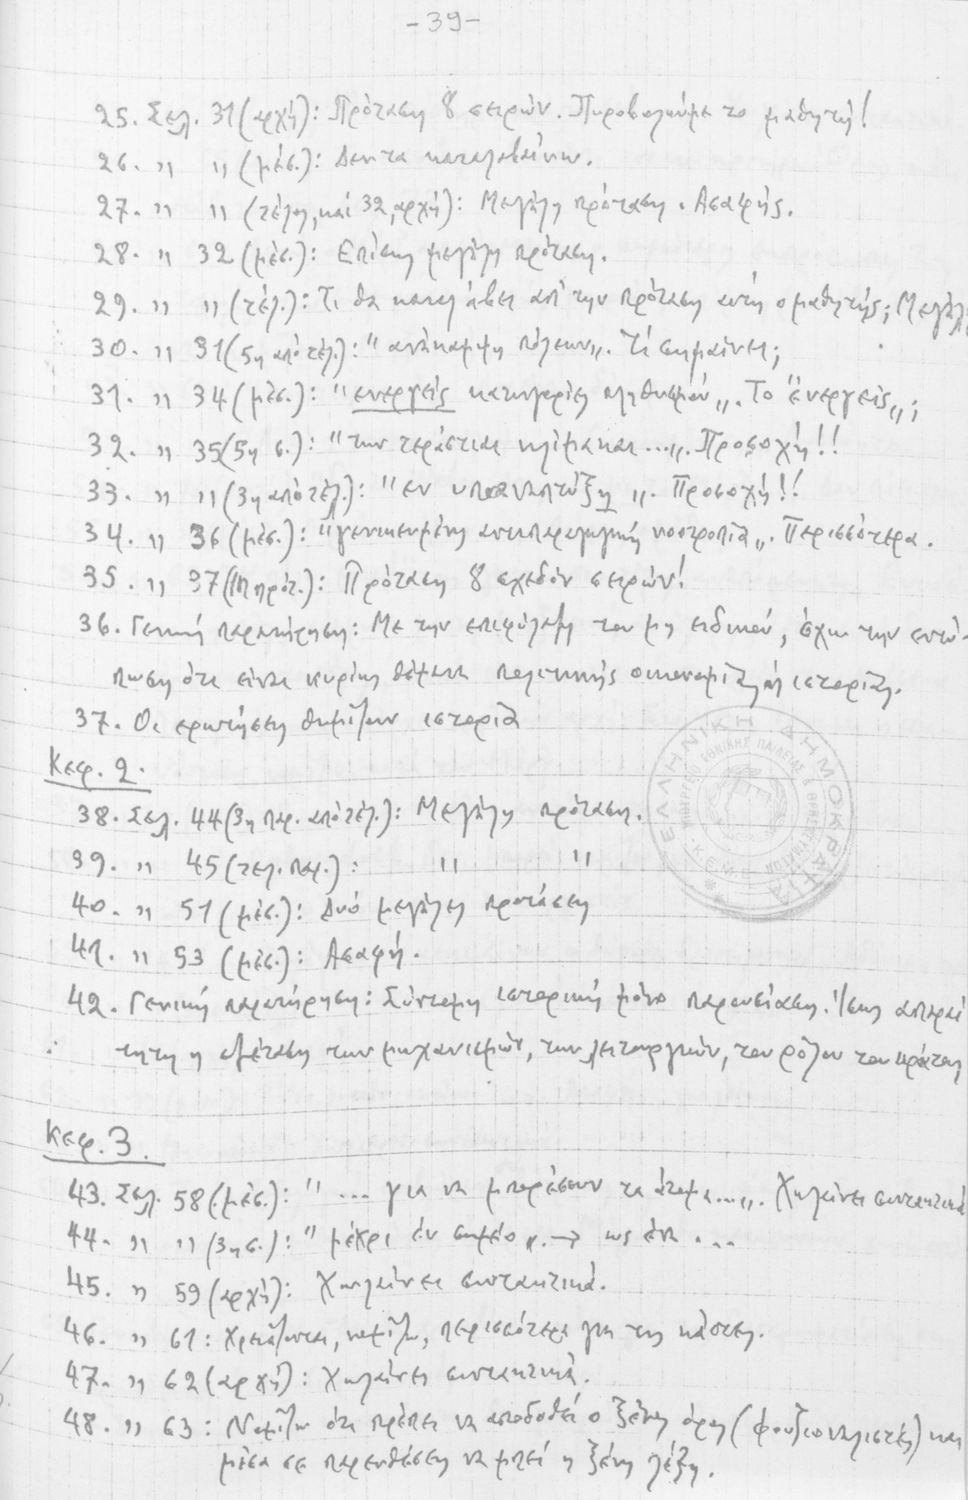 -39-
25. Σελ. 31 (αρχή): Πρόταση 8 σειρών. Πυροβολούμε το μαθητή!
26. " " (μέσ.): Δεν τα καταλαβαίνω.
27. " " (τέλη, και 32, αρχή): Μεγάλη πρόταση. Ασαφής.
28. " 32 (μέσ.): Επίσης μεγάλη πρόταση.
29. " " (τέλ.): Τι θα καταλάβει απ' την πρόταση αυτή ο μαθητής; Μεγάλη
30. " 31 (5η από τέλ.): "ανάκαμψη πόλεων". Τί σημαίνει;
31. " 34 (μέσ.): "ενεργείς κατηγορίες πληθυσμού". Το "ενεργείς";
32. " 35 (5η σ.): "την τεράστια κλίμακα...". Προσοχή!!
33. " " (3η από τέλ.): "εν υπαναπτύξη". Προσοχή!!
34. " 36 (μέσ.): "γενικευμένης αντιπαραγωγική νοοτροπία". Περισσότερα.
35. " 37 (1η πρότ.): Πρόταση 8 σχεδόν σειρών!
36. Γενική παρατήρηση: Με την επιφύλαξη του μη ειδικού, έχω την εντύ-
πωση ότι είναι κυρίως θέματα πολιτικής οικονομίας ή ιστορίας.
37. Οι ερωτήσεις θυμίζουν ιστορία
Κεφ. 2.
38. Σελ. 44 (3η παρ. από τέλ.): Μεγάλη πρόταση.
39. " 45 (τελ. παρ.): " "
40. " 51 (μέσ.): Δυό μεγάλες προτάσεις
41. " 53 (μέσ.): Ασαφή.
42. Γενική παρατήρηση: Σύντομη ιστορική μόνο παρουσίαση. Ίσως απαραί
τητη η εξέταση των μηχανισμών, των λειτουργιών, του ρόλου του κράτους
ΕΛΛΗΝΙΚΗ ΔΗΜΟΚΡΑΤΙΑ
ΥΠΟΥΡΓΕΙΟ ΕΘΝΙΚΗΣ ΠΑΙΔΕΙΑΣ & ΘΡΗΣΚΕΥΜΑΤΩΝ
Κ.Ε.Μ.Ε.
Κεφ. 3.
43. Σελ. 58 (μέσ.): "... για να μπορέσουν τα άτομα...". Χωλαίνει συντακτικά
44. " " (3η σ.): "μέχρι έν σημείο" → ως ένα ...
45. " 59 (αρχή): Χωλαίνει συντακτικά.
46. " 61: Χρειάζονται, νομίζω, περισσότερα για τις κάστες.
47. " 62 (αρχή): Χωλαίνει συντακτικά.
48. " 63: Νομίζω ότι πρέπει να αποδοθεί ο ξένος όρος (φουξιοναλιστές) και
μέσα σε παρενθέσεις να μπεί η ξένη λέξη.